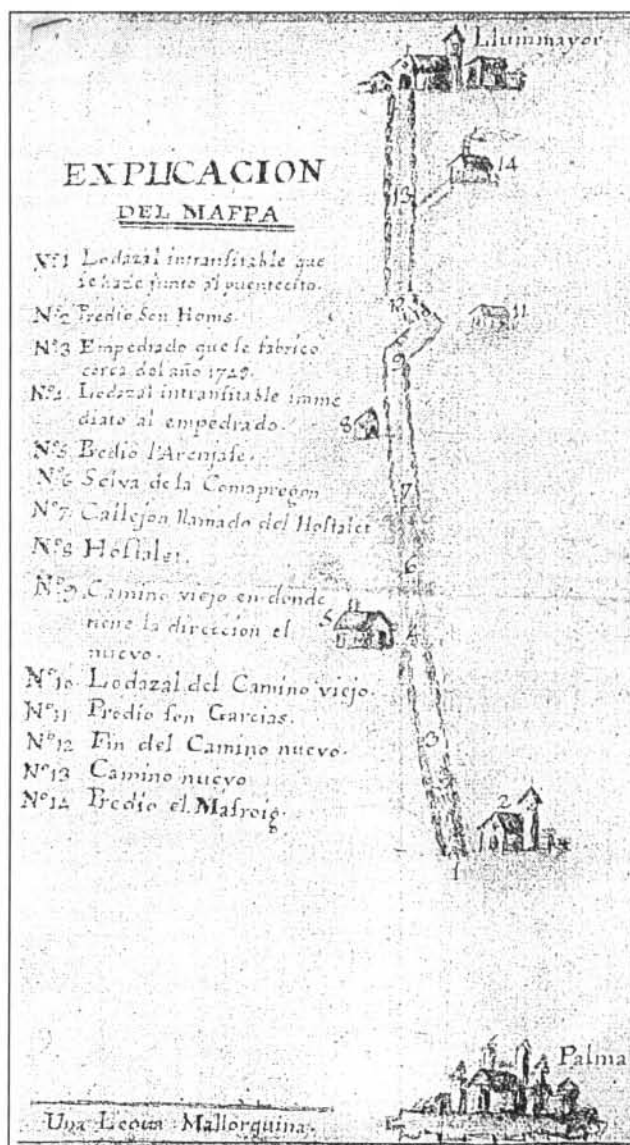 Llummayor
EXPLICACION
DEL MAPPA
Nº1 Lodazal intransitable que
se haze junto al puentecito.
Nº2 Predio Son Homs.
Nº3 Empedrado que se fabricò
cerca del año 1749.
Nº4 Lodazal intransitable imme
diato al empedrado.
Nº5 Predio l'Arenjase.
Nº6 Selva de la Comapregon
Nº7 Callejon llamado del Hostalet
Nº8 Hostalet.
Nº9 Camino viejo en donde
tiene la direccion el
nuevo.
Nº10 Lodazal del Camino viejo.
Nº11 Predio son Garcias.
Nº12 Fin del Camino nuevo.
Nº13 Camino nuevo
Nº14 Predio el Masroig.
14
13
12
10
11
9
8
7
6
5
4
3
2
1
Palma
Una Legua Mallorquina.